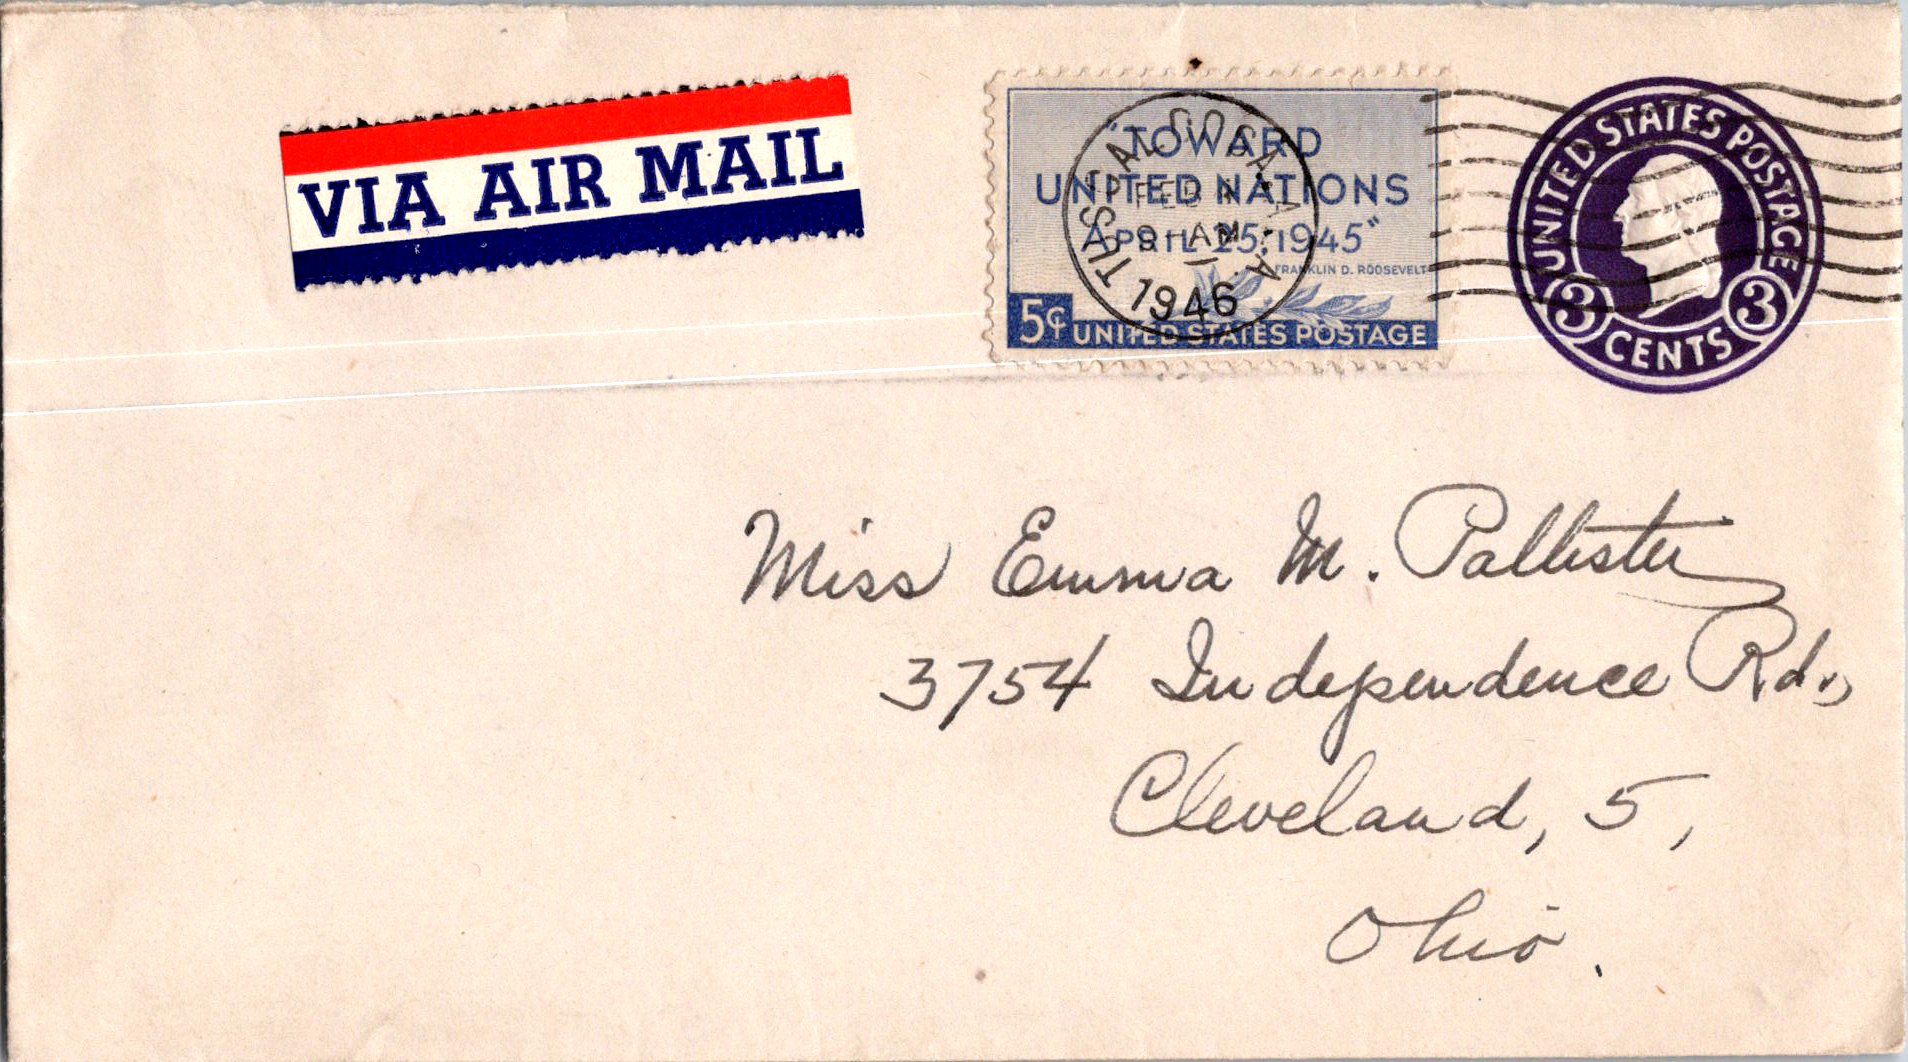 VIA AIR MAIL
"TOWARD
UNITED NATIONS
APRIL 25, 1945"
FRANKLIN D. ROOSEVELT
5¢ UNITED STATES POSTAGE
TUSCALOOSA, ALA.
FEB
8 AM
1946
UNITED STATES POSTAGE
3 CENTS 3
Miss Emma M. Pallister
3754 Independence Rd.,
Cleveland, 5,
Ohio.